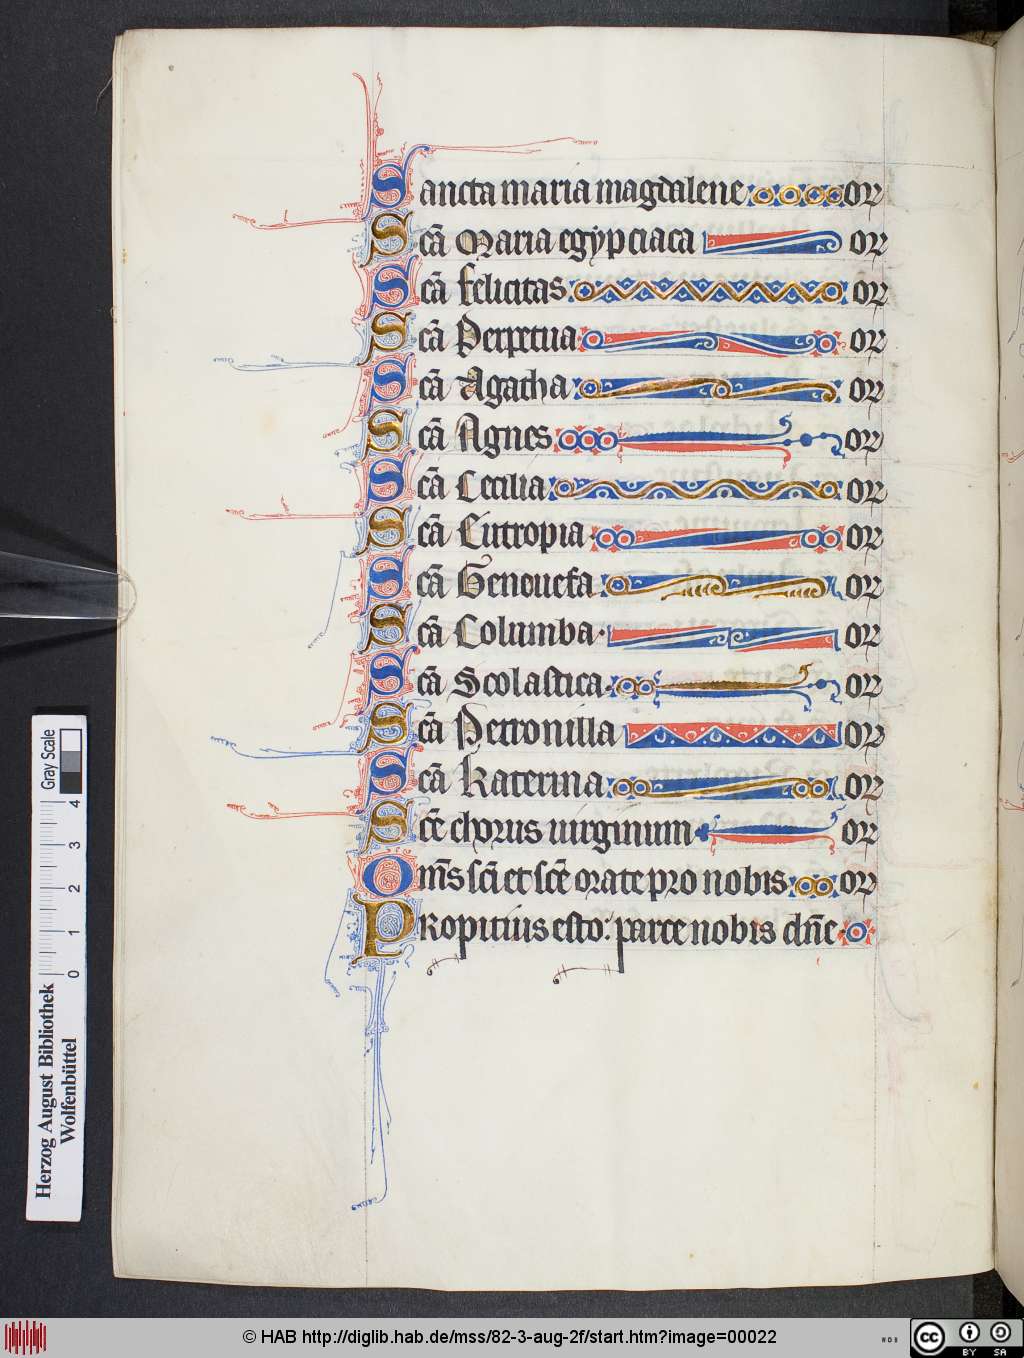 Sancta maria magdalene or
Scā Maria egypciaca or
Scā felicitas or
Scā Perpetua or
Scā Agatha or
Scā Agnes or
Scā Cecilia or
Scā Eutropia or
Scā Genouefa or
Scā Columba or
Scā Scolastica or
Scā Petronilla or
Scā Katerina or
Scē chorus uirginum or
Om̄s scī et scē orate pro nobis or
Propitius esto: parce nobis dn̄e
Gray Scale
4
3
2
1
0
Herzog August Bibliothek
Wolfenbüttel
© HAB http://diglib.hab.de/mss/82-3-aug-2f/start.htm?image=00022
WDB
cc BY SA